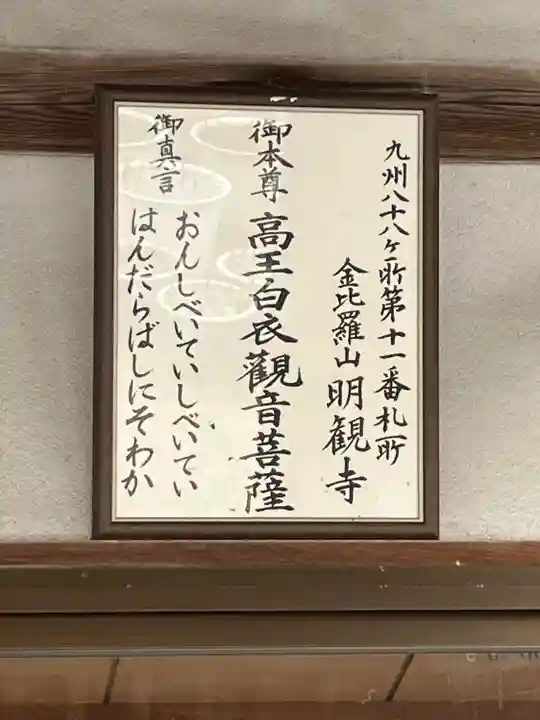 九州八十八ヶ所第十一番札所
金比羅山明観寺
御本尊 高王白衣觀音菩薩
御真言 おんしべいていしべいてい
はんだらばしにそわか